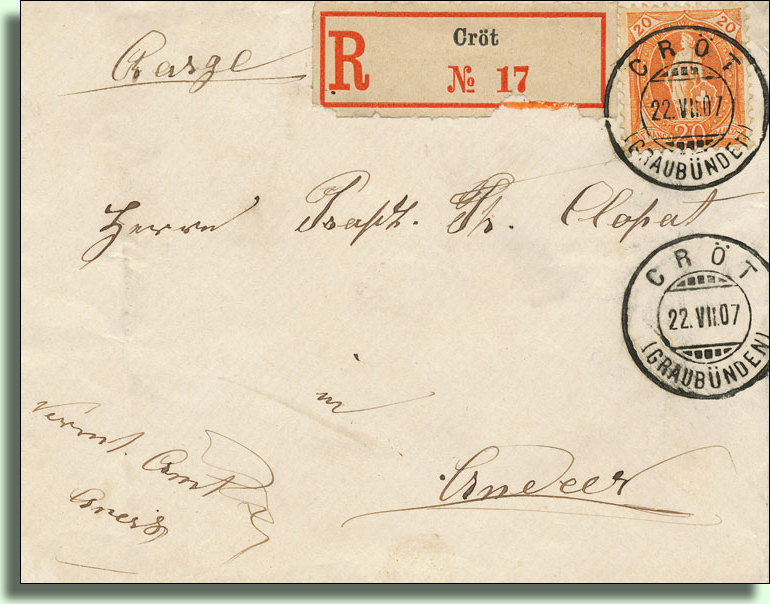 Charge
R
Cröt
№ 17
20 20
20
CRÖT
22.VII.07
(GRAUBÜNDEN)
Herrn Clopat
CRÖT
22.VII.07
(GRAUBÜNDEN)
in
Andeer